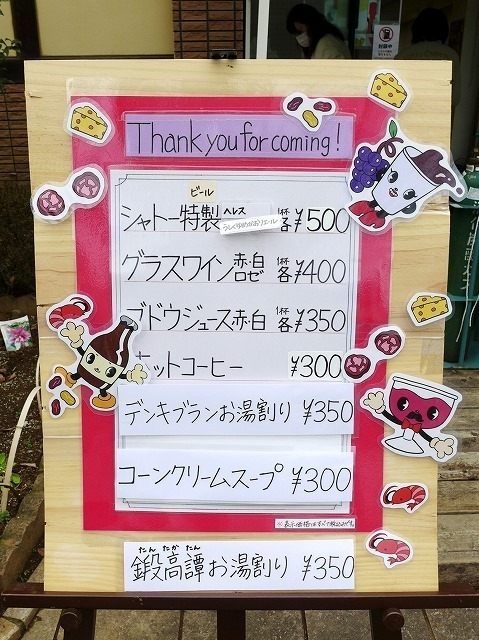 Thank you for coming!
ビール
シャトー特製ヘレス 1杯各¥500
グラスワイン赤・白ロゼ 1杯各¥400
ブドウジュース赤・白 1杯各¥350
ホットコーヒー ¥300
デンキブランお湯割り ¥350
コーンクリームスープ ¥300
※表示価格はすべて税込みです。
たん たか たん
鍛高譚お湯割り ¥350